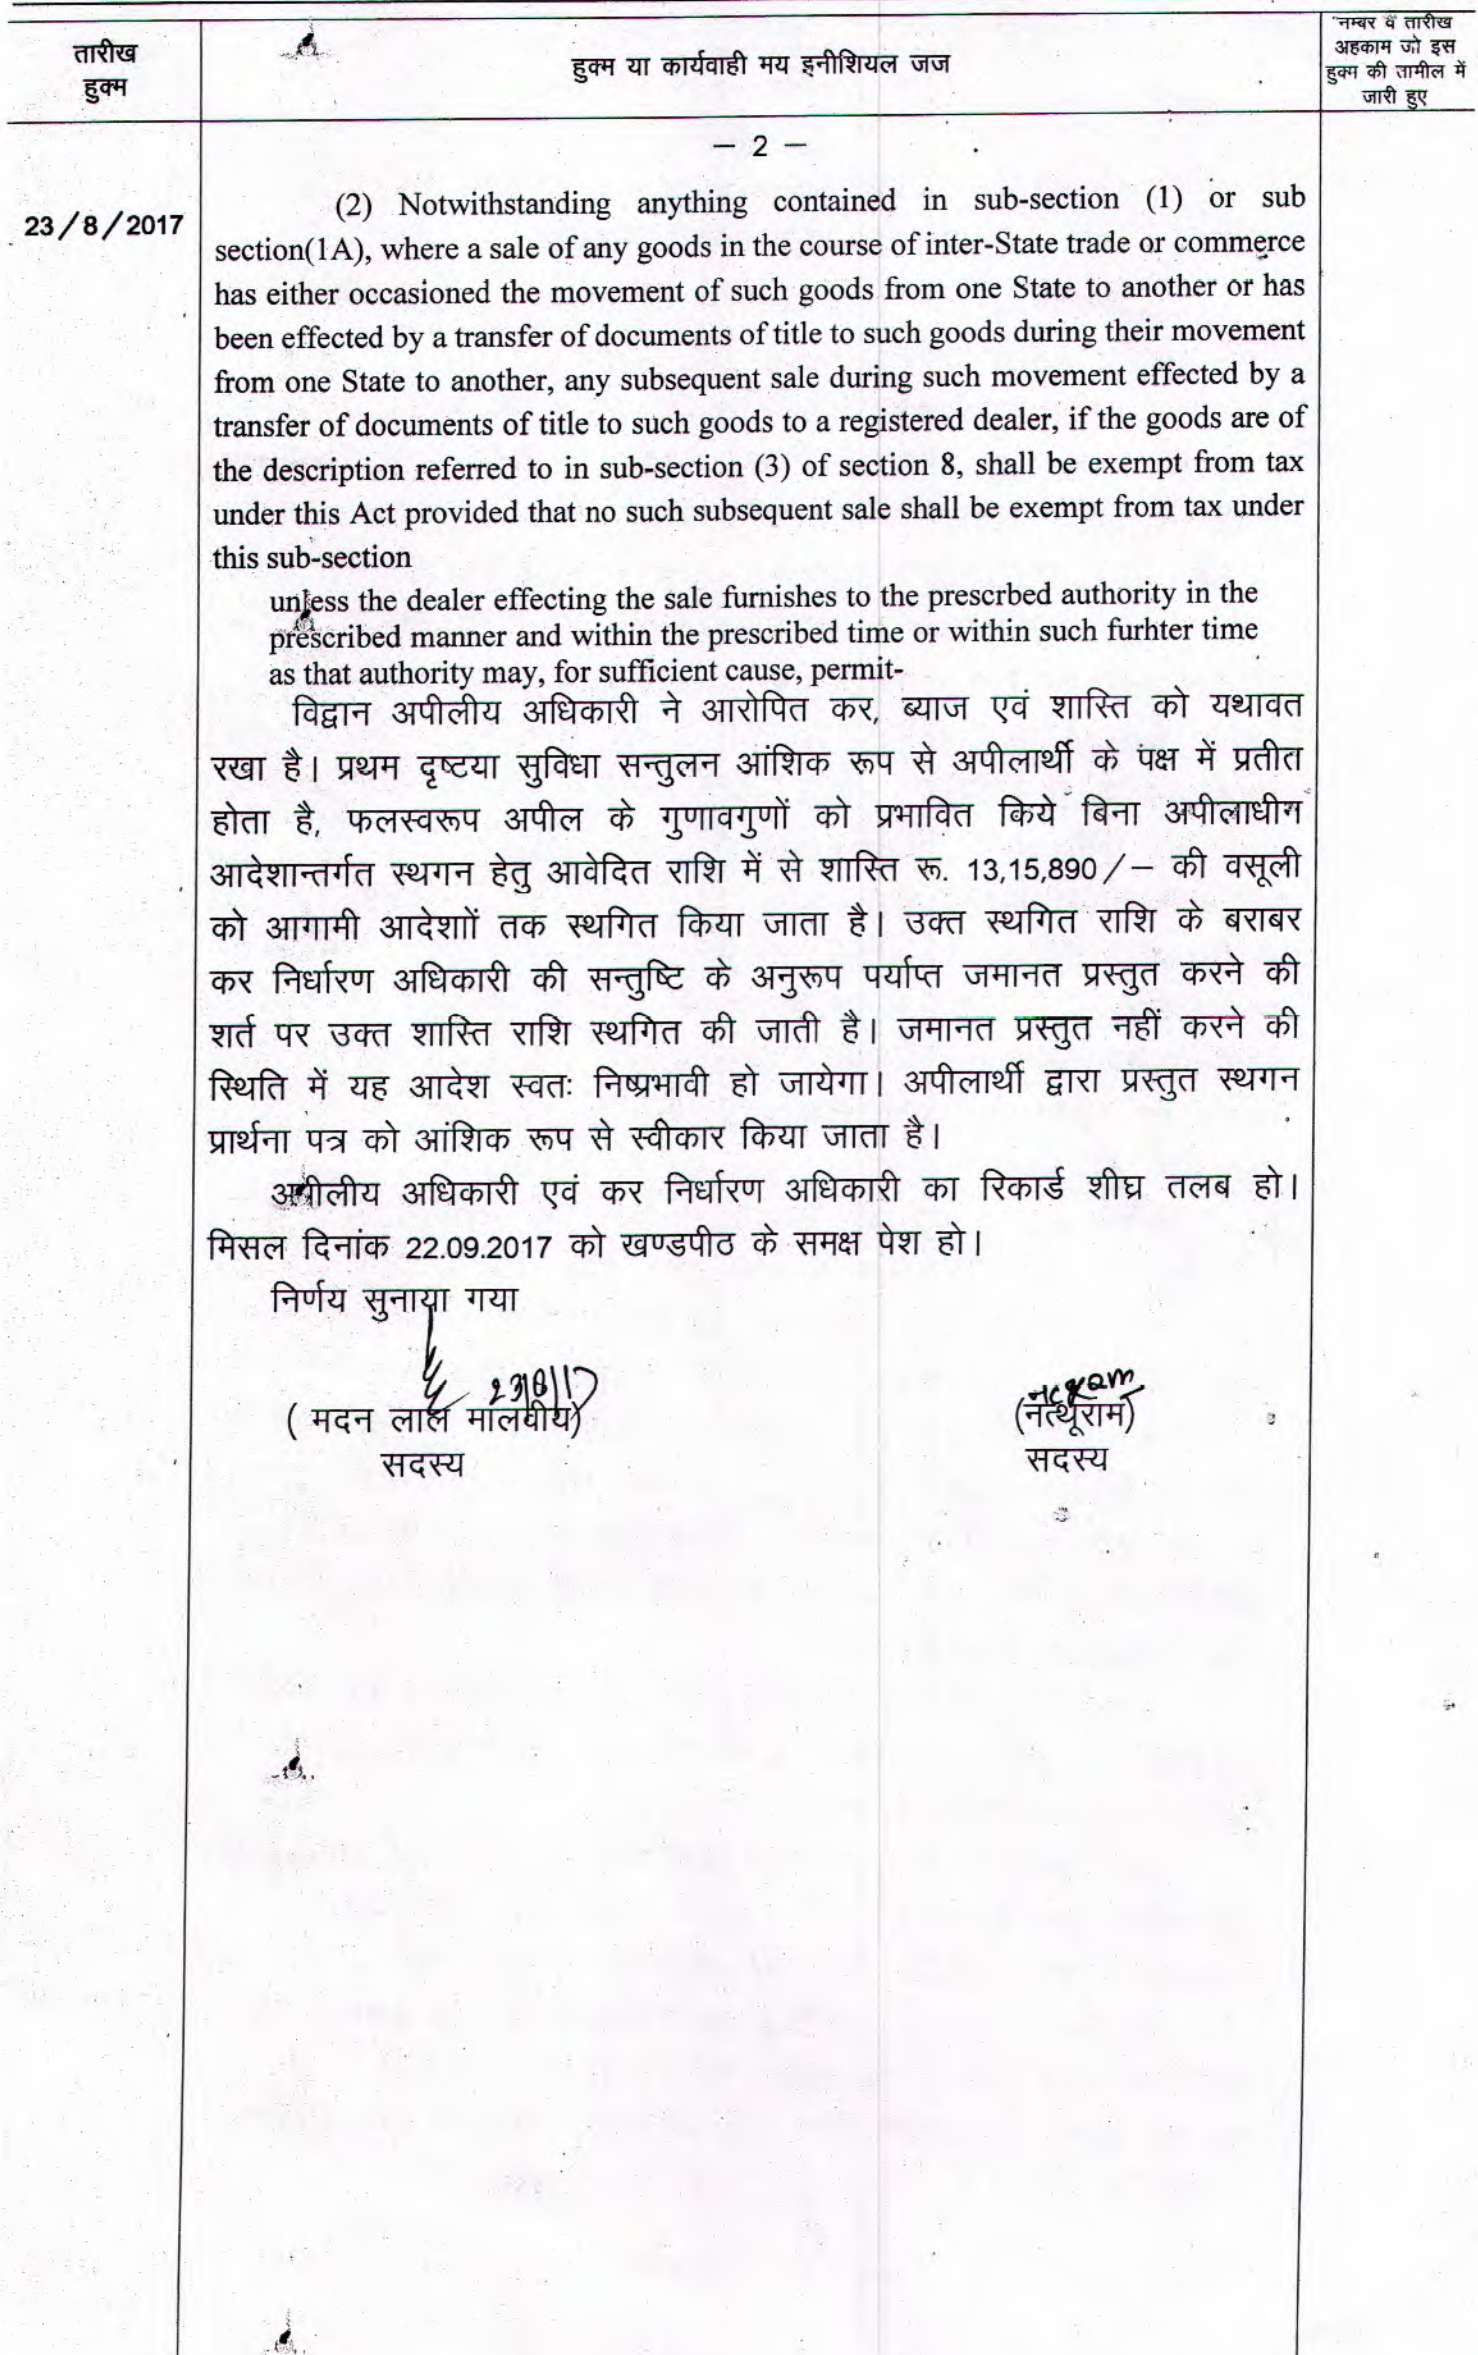 तारीख
हुक्म
हुक्म या कार्यवाही मय इनीशियल जज
नम्बर व तारीख
अहकाम जो इस
हुक्म की तामील में
जारी हुए
— 2 —
23/8/2017
(2) Notwithstanding anything contained in sub-section (1) or sub
section(1A), where a sale of any goods in the course of inter-State trade or commerce
has either occasioned the movement of such goods from one State to another or has
been effected by a transfer of documents of title to such goods during their movement
from one State to another, any subsequent sale during such movement effected by a
transfer of documents of title to such goods to a registered dealer, if the goods are of
the description referred to in sub-section (3) of section 8, shall be exempt from tax
under this Act provided that no such subsequent sale shall be exempt from tax under
this sub-section
unless the dealer effecting the sale furnishes to the prescrbed authority in the
prescribed manner and within the prescribed time or within such furhter time
as that authority may, for sufficient cause, permit-
विद्वान अपीलीय अधिकारी ने आरोपित कर, ब्याज एवं शास्ति को यथावत
रखा है। प्रथम दृष्टया सुविधा सन्तुलन आंशिक रूप से अपीलार्थी के पक्ष में प्रतीत
होता है, फलस्वरूप अपील के गुणावगुणों को प्रभावित किये बिना अपीलाधीन
आदेशान्तर्गत स्थगन हेतु आवेदित राशि में से शास्ति रू. 13,15,890/— की वसूली
को आगामी आदेशाों तक स्थगित किया जाता है। उक्त स्थगित राशि के बराबर
कर निर्धारण अधिकारी की सन्तुष्टि के अनुरूप पर्याप्त जमानत प्रस्तुत करने की
शर्त पर उक्त शास्ति राशि स्थगित की जाती है। जमानत प्रस्तुत नहीं करने की
स्थिति में यह आदेश स्वतः निष्प्रभावी हो जायेगा। अपीलार्थी द्वारा प्रस्तुत स्थगन
प्रार्थना पत्र को आंशिक रूप से स्वीकार किया जाता है।
अपीलीय अधिकारी एवं कर निर्धारण अधिकारी का रिकार्ड शीघ्र तलब हो।
मिसल दिनांक 22.09.2017 को खण्डपीठ के समक्ष पेश हो।
निर्णय सुनाया गया
23/8/17
( मदन लाल मालवीय)
सदस्य
(नत्थूराम)
सदस्य